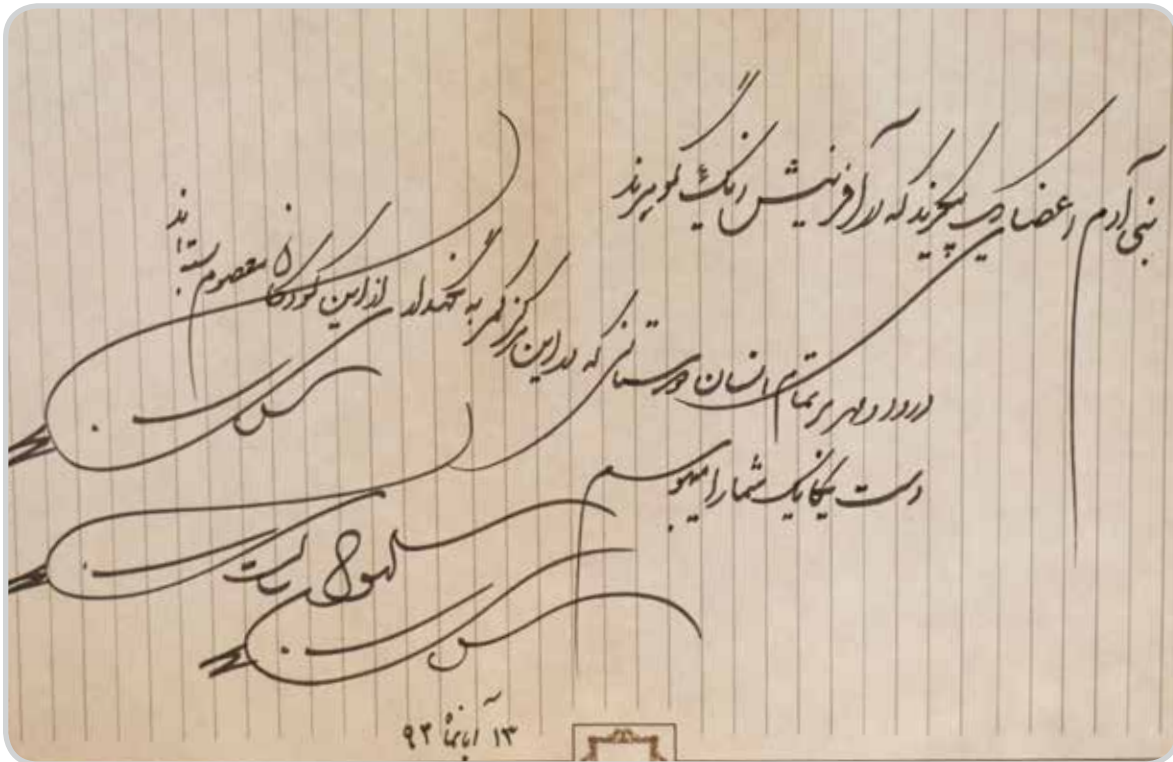 بنی آدم اعضای یکدیگرند که در آفرینش ز یک گوهرند
درود و مهر بر تمام انسان دوستانی که در این مرکز کمر به نگهداری از این کودکان معصوم بسته اند
دست یکایک شما را میبوسم
۱۳ آبانماه ۹۳